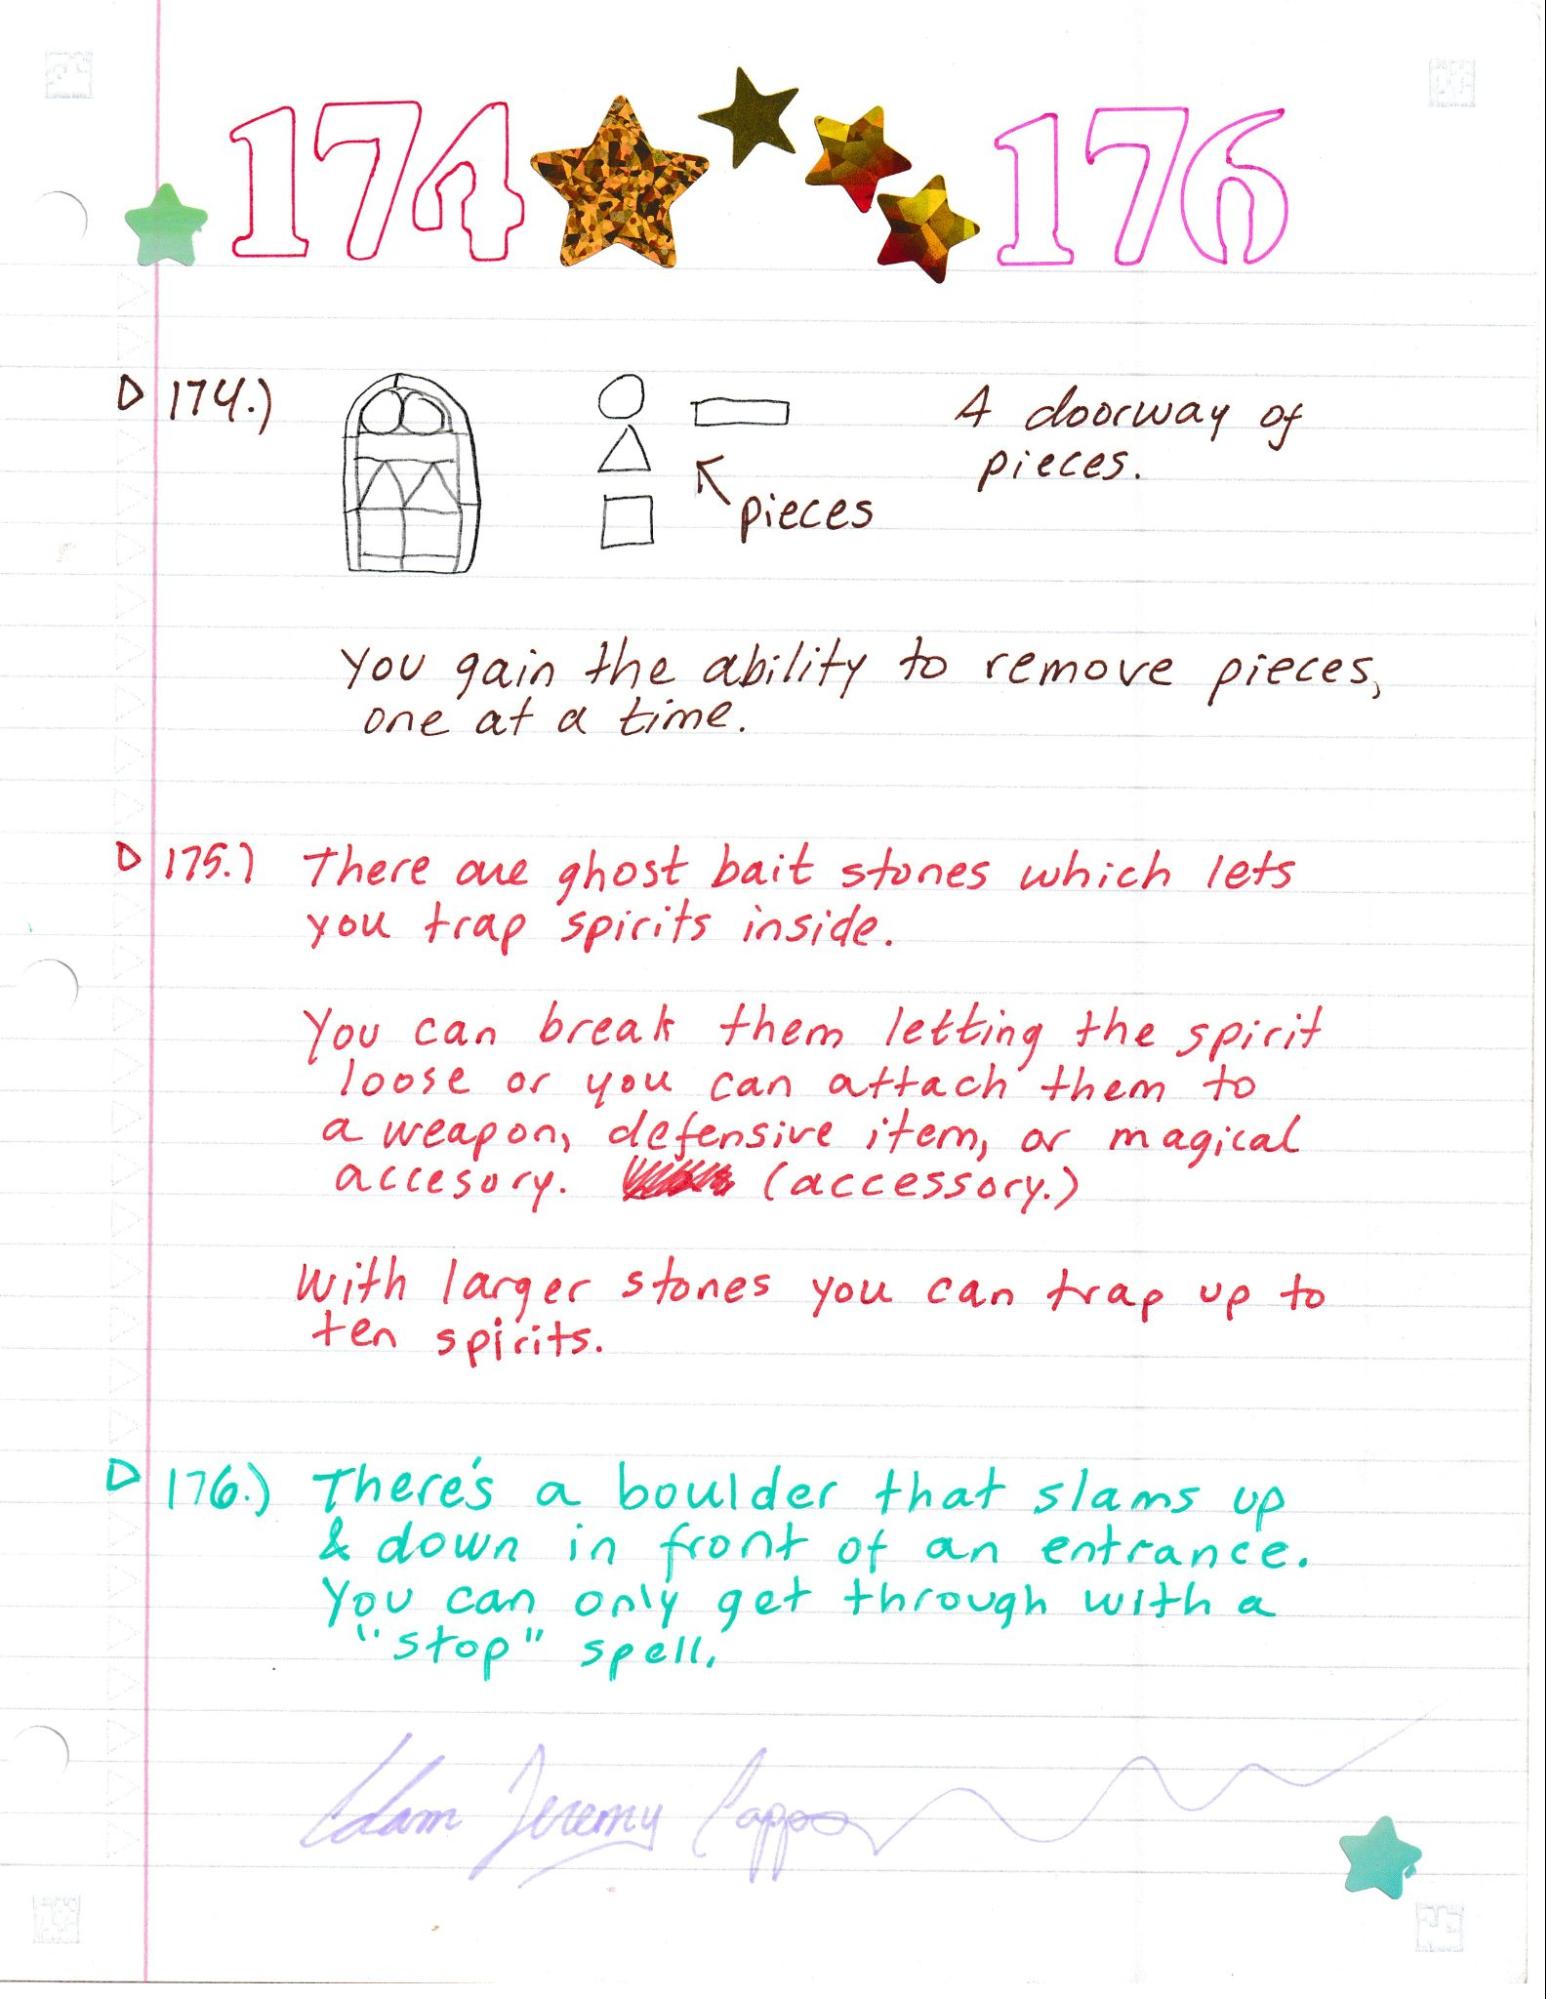 174 176
174.)
A doorway of
pieces.
pieces
You gain the ability to remove pieces,
one at a time.
175.) There are ghost bait stones which lets
you trap spirits inside.
You can break them letting the spirit
loose or you can attach them to
a weapon, defensive item, or magical
accesory. (accessory.)
With larger stones you can trap up to
ten spirits.
176.) There's a boulder that slams up
& down in front of an entrance.
You can only get through with a
"stop" spell.
Adam Jeremy Capps